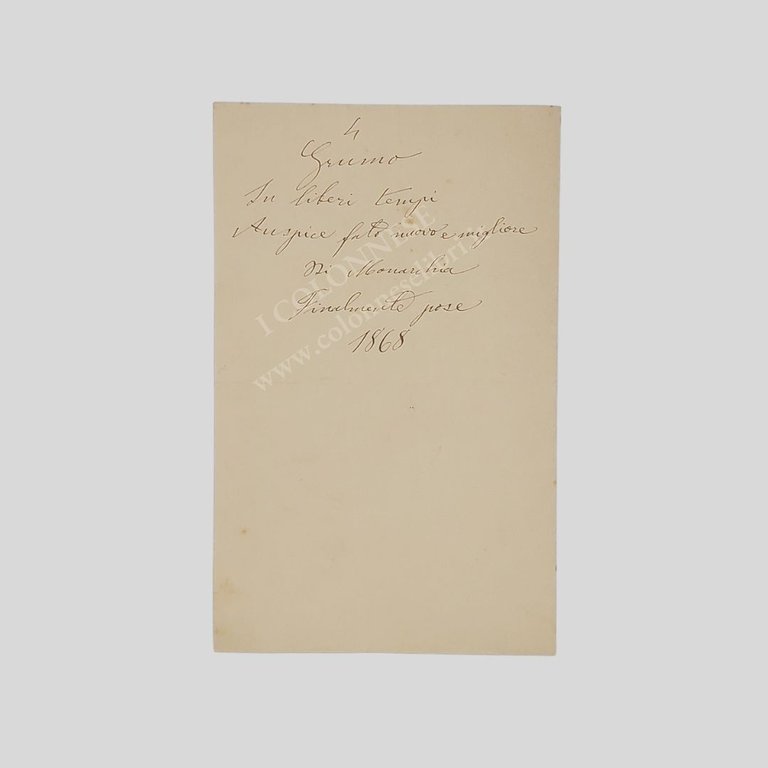 4
Grumo
In liberi tempi
Auspice fato nuovo e migliore
Di Monarchia
Finalmente pose
1868
I COLONNESE
www.colonneseliteri